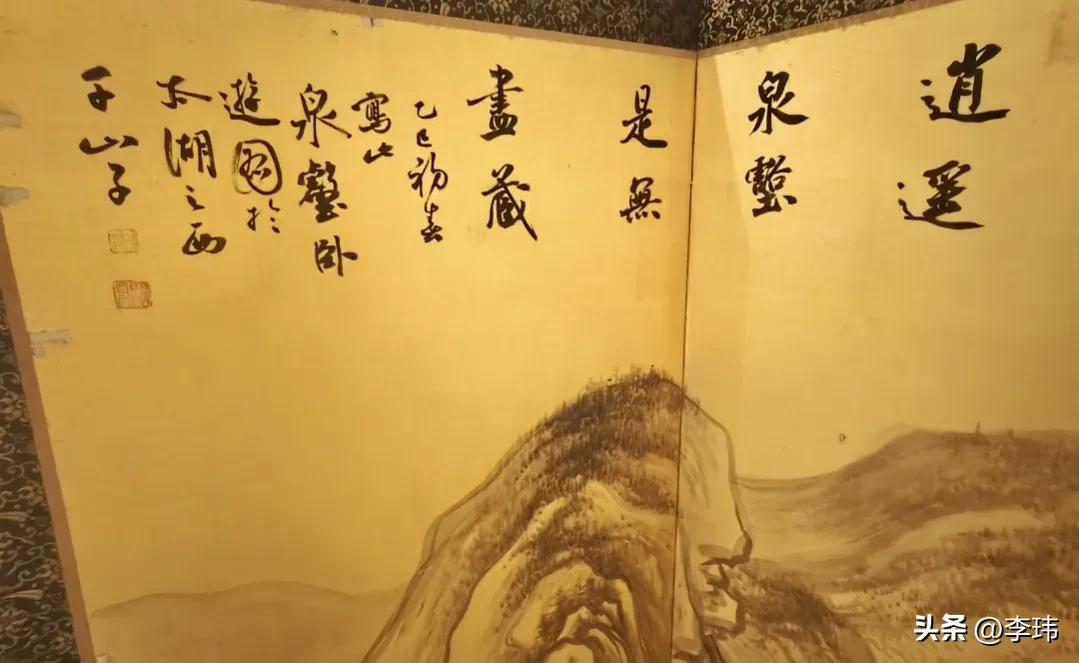 逍遥
泉壑
是無
盡藏
乙巳初春
寫此
泉壑卧
遊圖於
太湖之西
千山子
头条 @李玮